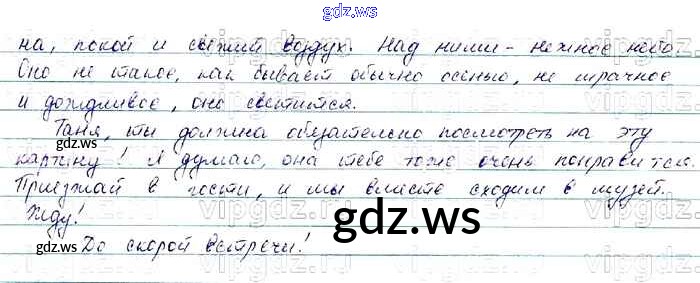 gdz.ws
на, покой и свежий воздух. Над ними - нежное небо.
Оно не такое, как бывает обычно осенью, не мрачное
и дождливое, оно светится.
Таня, ты должна обязательно посмотреть на эту
картину! Я думаю, она тебе тоже очень понравится.
Приезжай в гости, и мы вместе сходим в музей.
Жду!
gdz.ws
До скорой встречи!
gdz.ws